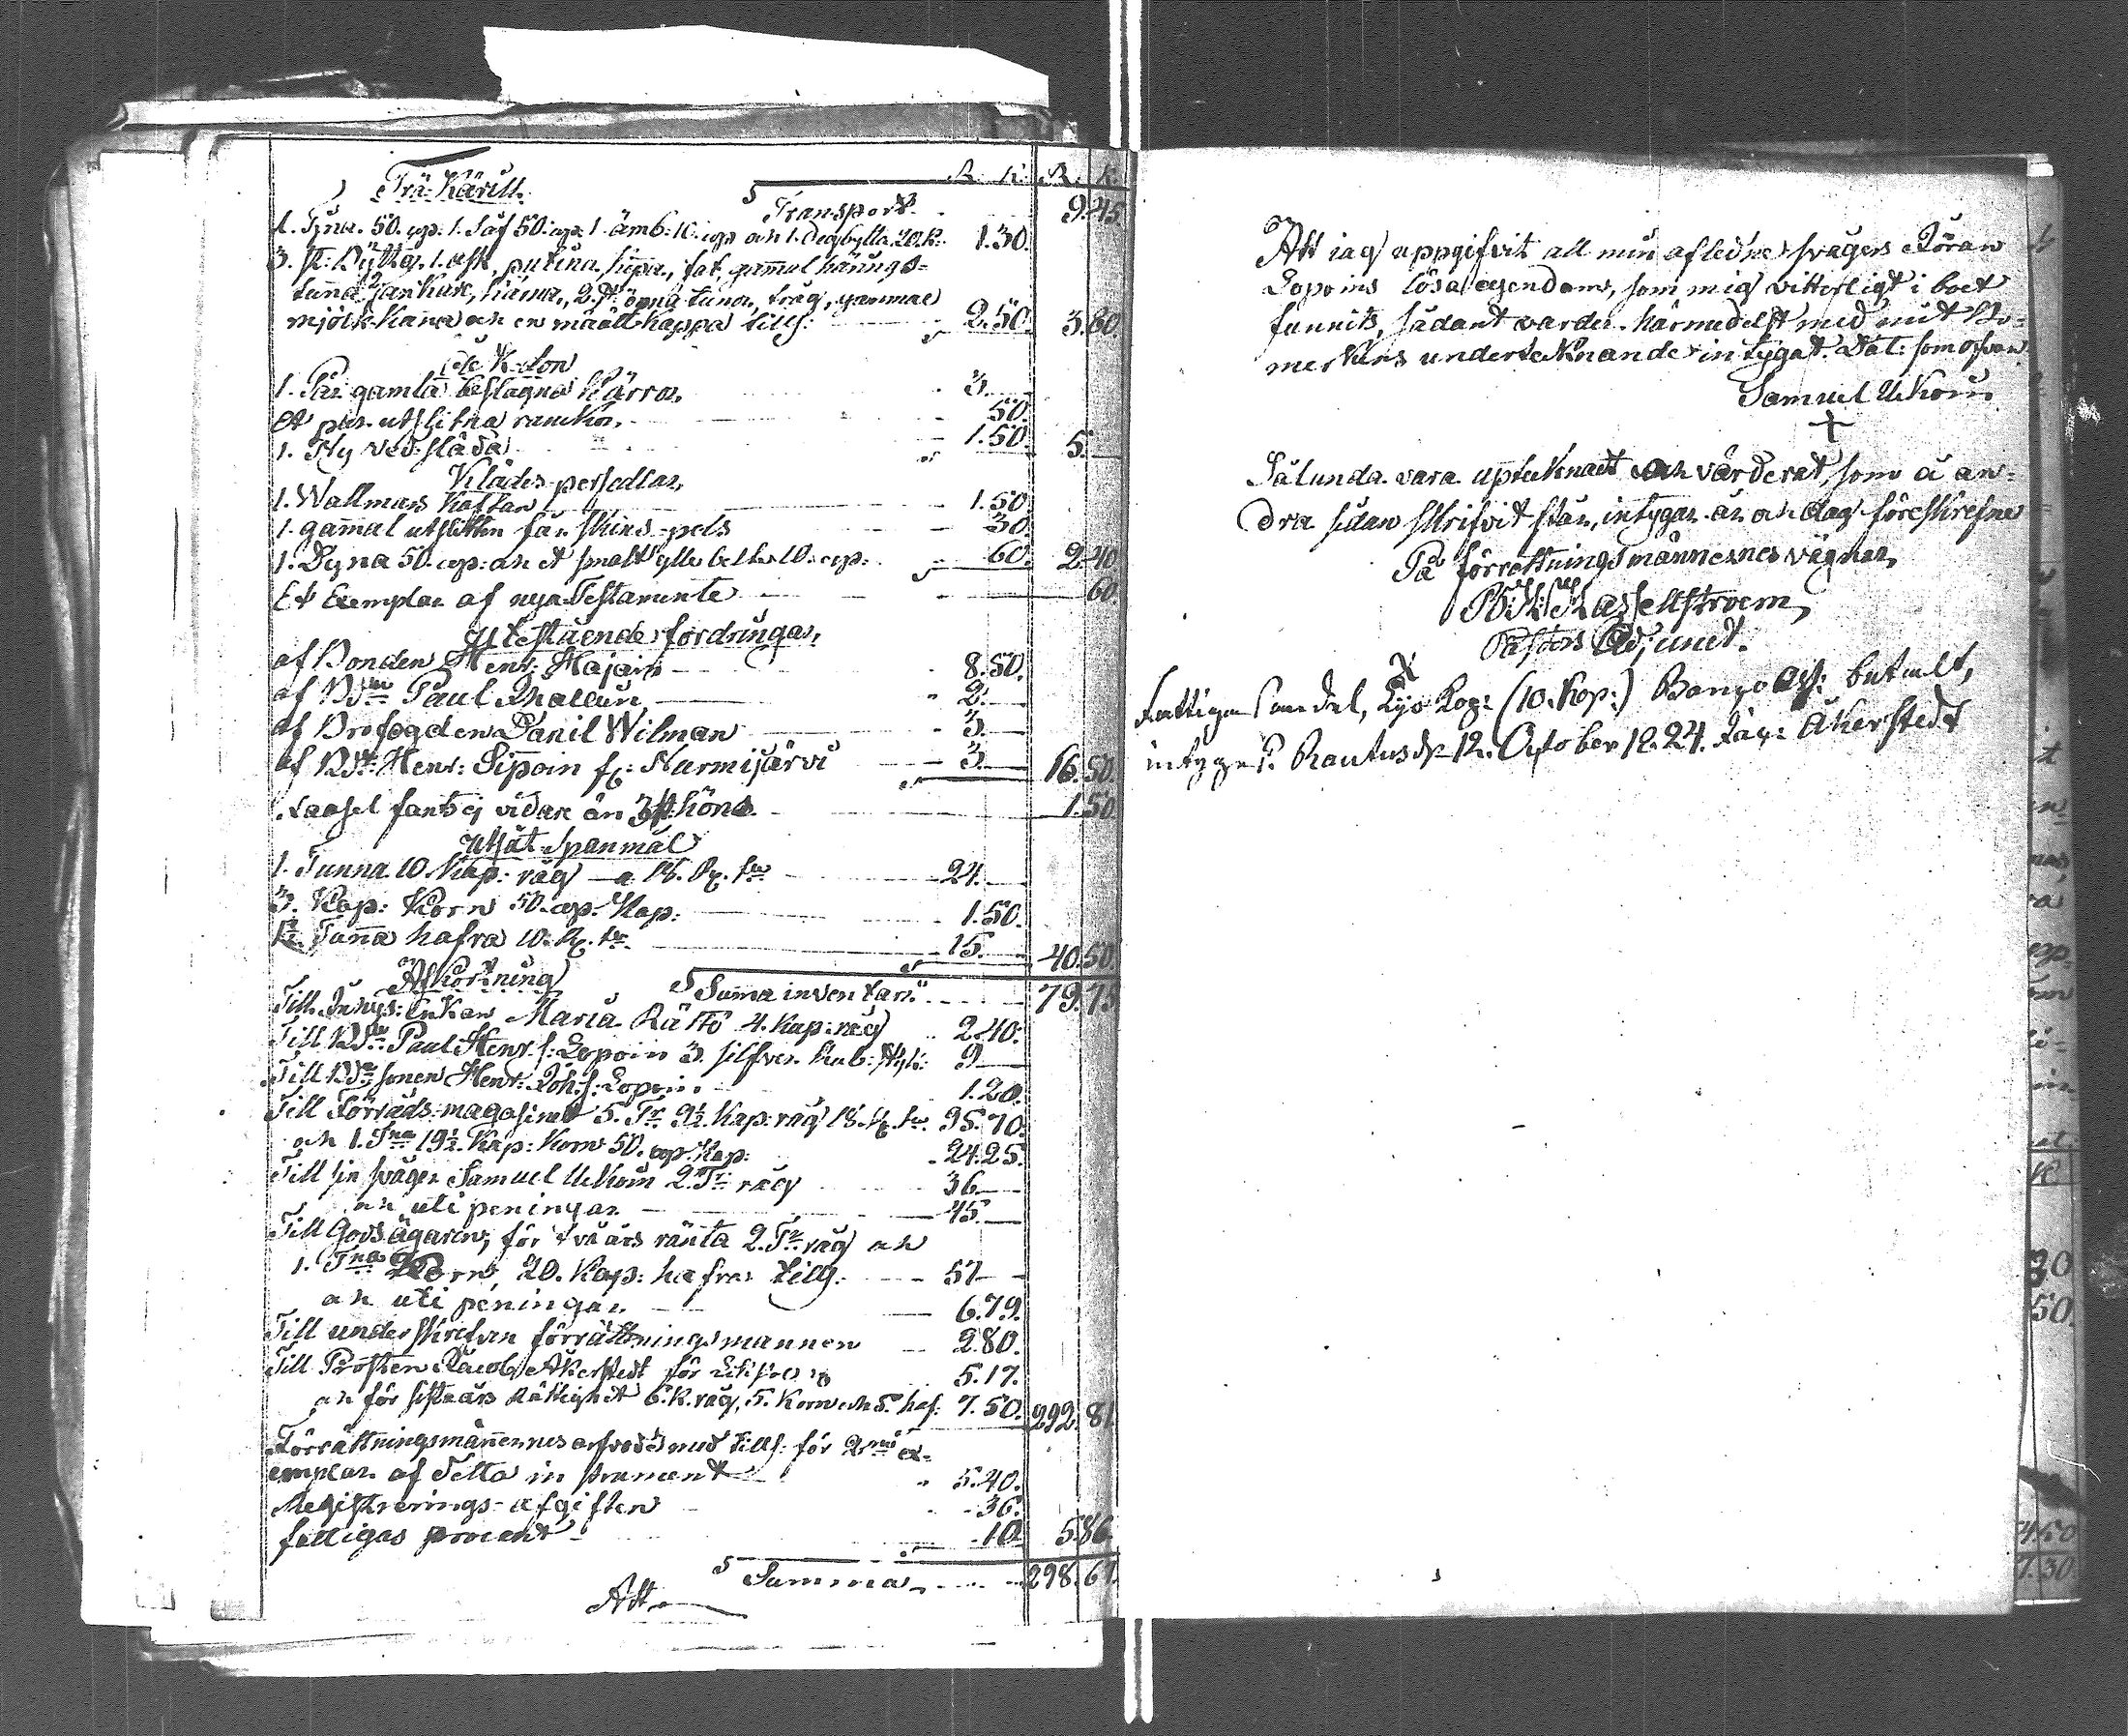 R. K. R. K.
Trä-Kärill.
Transport. 9.45
1. Tyna. 50. cop: 1. Såf 50. cop: 1. ämb: 10. cop och 1. degbytta. 20. K: 1.30.
3. st: Byttor, 1. ask, putina, fat, gam̄al
tun̄a, 2. st öpna tunor, tråg, gammal
mjölk-Kana och en måålt-Kappa tills: 2.50. 3.80.
Åk-don
1. Par gamla beslagna Kärror, 3.
Et par utslitna 50.
1. Ny ved-släda 1.50. 5.
Klädes-persedlar,
1. Wallmars Kaftan 1.50
1. gam̄al utsliten fårskins-pels 30.
1. Dyna 50. cop: och et smalt ylle belte 10. cop: 60. 2.40
Et Exemplar af nya Testamente 60.
Utestående fordringar,
af Bonden Henr: Hajain 8.50.
af Bdn Paul 2.
af Brofogden Danil Wilman 3.
af Bdn Henr: Sipoin fr: Narmijärvi 3. 16.50.
Boskap fants ej vidare än 3 st höns. 1.50.
Utsåt Spanmål
1. Tunna 10. Kap: råg a 18. R. tn 24.
3. Kap: Korn 50. cop: Kap: 1.50.
1½. Tun̄a hafra 10. R. tn. 15. 40.50.
Afkortning
Suma inventarii 79.75
Till Enkan Maria Rättö 4. Kap: råg 2.40.
Till Bdn Paul Henr. s: Lopoin 3. silfver Rub: 9
Till Bde sonen Henr: Joh. s: Lopoin. 1.20.
Till Förråds-magasinet 5. Tr 9½ Kap: råg 18. R. tn. 95.70.
och 1. Tna 19½ Kap: Korn 50. cop. Kap: 24.25.
Till sin svåger Samuel Ukkoin 2. Tr råg 36
och uti peningar 45.
Till Godsägaren, för två års ränta 2. Tr. råg och
1. Tna Korn, 20. Kap: hafra tills. 57
och uti peningar 6.79.
Till underskrefven förrättningsmannen 2.80.
Till Prosten Jacob Åkerstedt för 5.17.
och för sista års rättighet 6. K. råg, 5. Korn och 5. haf: 7.50. 292.81.
Förrättningsmännernes arfvode med tills: för 2ne ex-
emplar af detta instrument 5.40.
Registrerings-afgiften 36.
fattigas procent 10. 5.86.
Summa 298.67.
Att
Att jag uppgifvit all min afledne svågers Jöran
Lopoins lösa egendom, som mig vitterligt i boet
funnits, sådant varder härmedelst med mit Bo-
merkes undertecknande intygat. Dat: som ofvan
Samuel Ukkoin.
Sålunda vara uptecknadt och värderat, som å an-
dra sidan skrifvit står, intygar år och dag föreskrefne
På förrättningsmännernes vägnar,
Hasselstroem,
Pastors Adjunct.
Fattigas andel, Tijo Kop: (10. Kop:) Banco Ass: betalt,
intygas. Rautus d. 12. October 1824. Jac: Åkerstedt